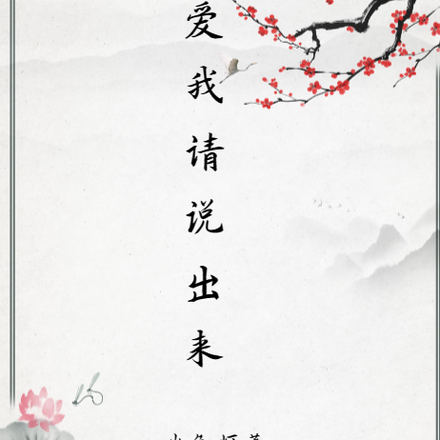 爱我请说出来